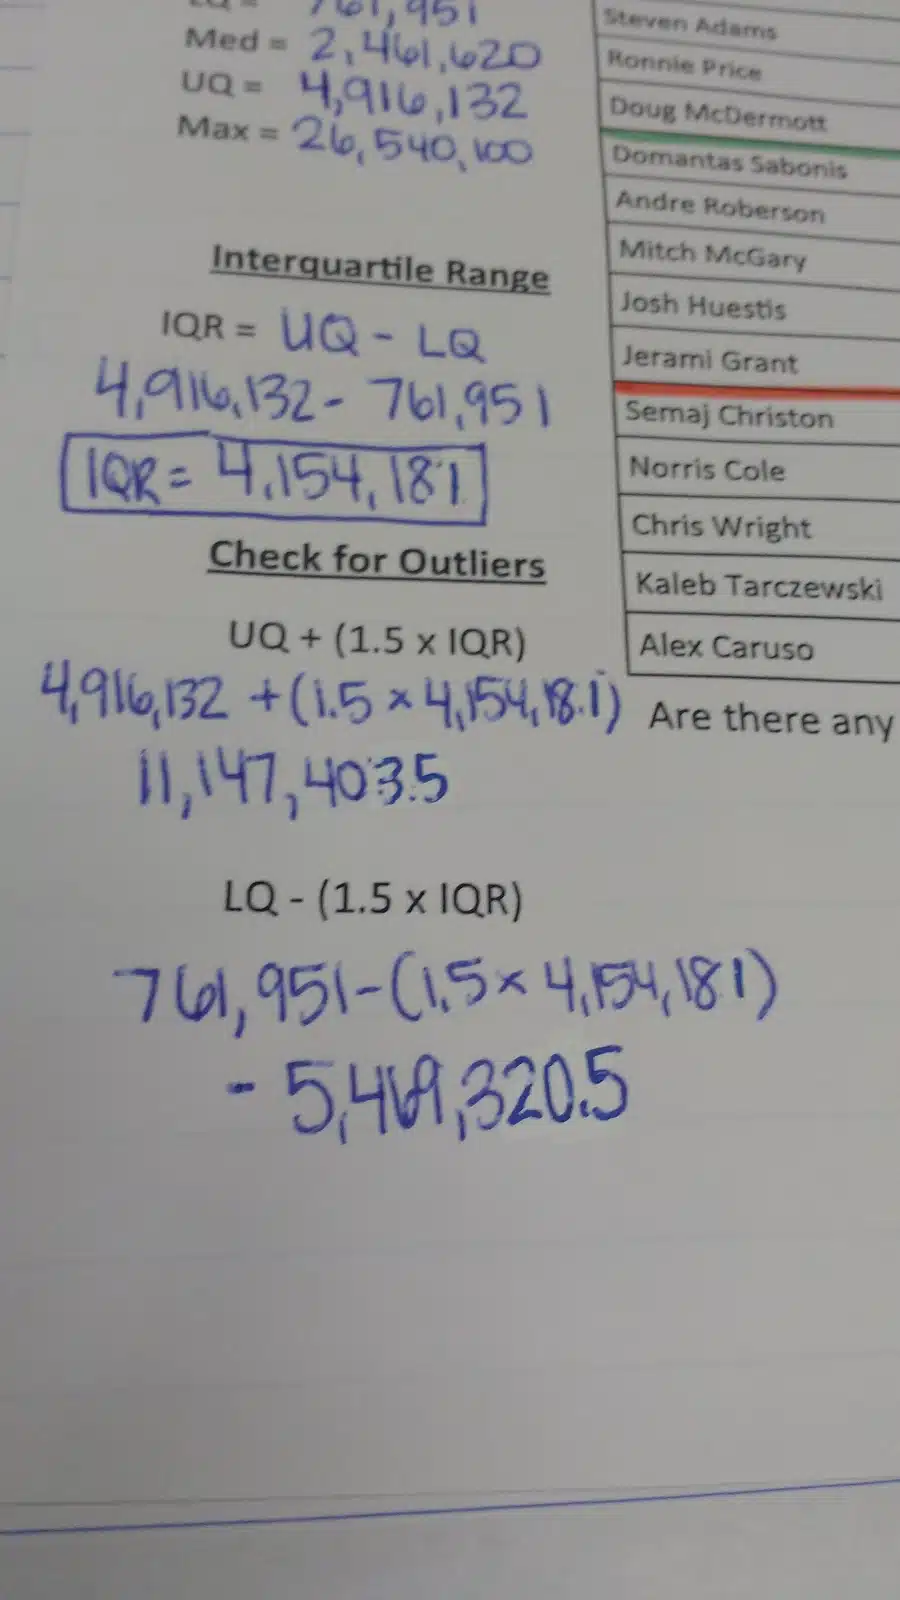 LQ = 761,951
Med = 2,461,620
UQ = 4,916,132
Max = 26,540,100
Interquartile Range
IQR = UQ - LQ
4,916,132 - 761,951
IQR = 4,154,181
Check for Outliers
UQ + (1.5 x IQR)
4,916,132 + (1.5 × 4,154,181)
11,147,403.5
LQ - (1.5 x IQR)
761,951 - (1.5 × 4,154,181)
- 5,469,320.5
Steven Adams
Ronnie Price
Doug McDermott
Domantas Sabonis
Andre Roberson
Mitch McGary
Josh Huestis
Jerami Grant
Semaj Christon
Norris Cole
Chris Wright
Kaleb Tarczewski
Alex Caruso
Are there any